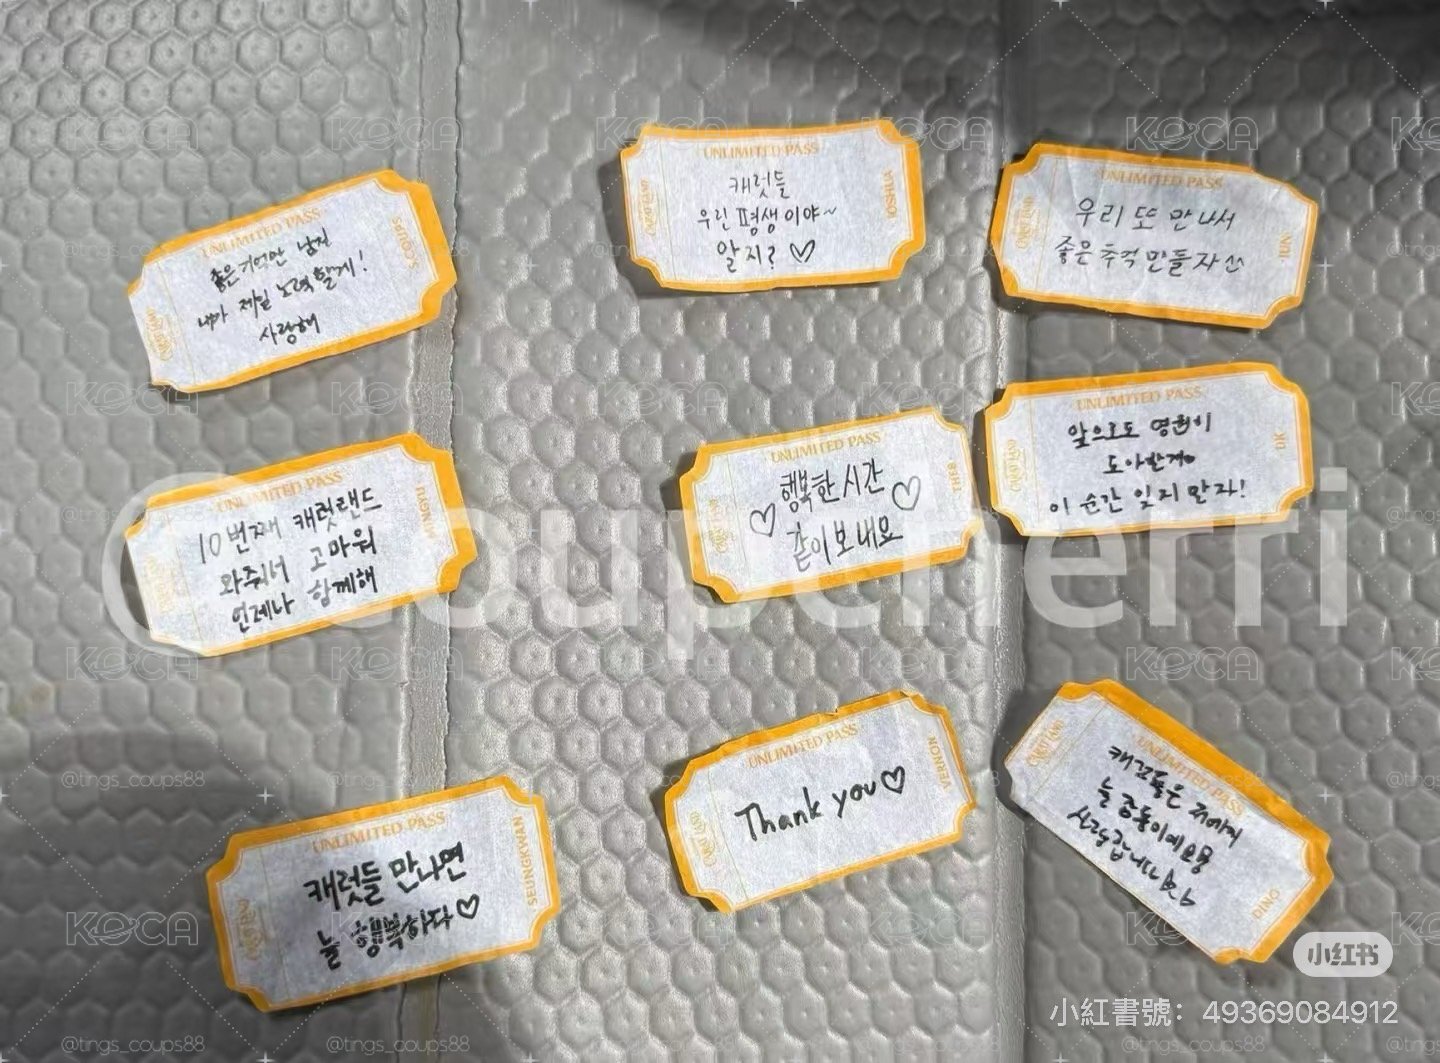 UNLIMITED PASS
S.COUPS
좋은 기억만 남진
내가 제일 노력할게!
사랑해
UNLIMITED PASS
JOSHUA
캐럿들
우린 평생이야~
알지? ♡
UNLIMITED PASS
JUN
우리 또 만나서
좋은 추억 만들자
UNLIMITED PASS
MINGYU
10번째 캐럿랜드
와줘서 고마워
언제나 함께해
UNLIMITED PASS
THE8
♡ 행복한 시간 ♡
같이 보내요
UNLIMITED PASS
DK
앞으로도 영원히
이 순간 잊지 말자!
UNLIMITED PASS
SEUNGKWAN
캐럿들 만나면
늘 행복하다♡
UNLIMITED PASS
VERNON
Thank you♡
UNLIMITED PASS
DINO
늘 감동이에요
사랑합니다
©coupcherri
KOCA
@tings_coups88
小红书
小紅書號：49369084912